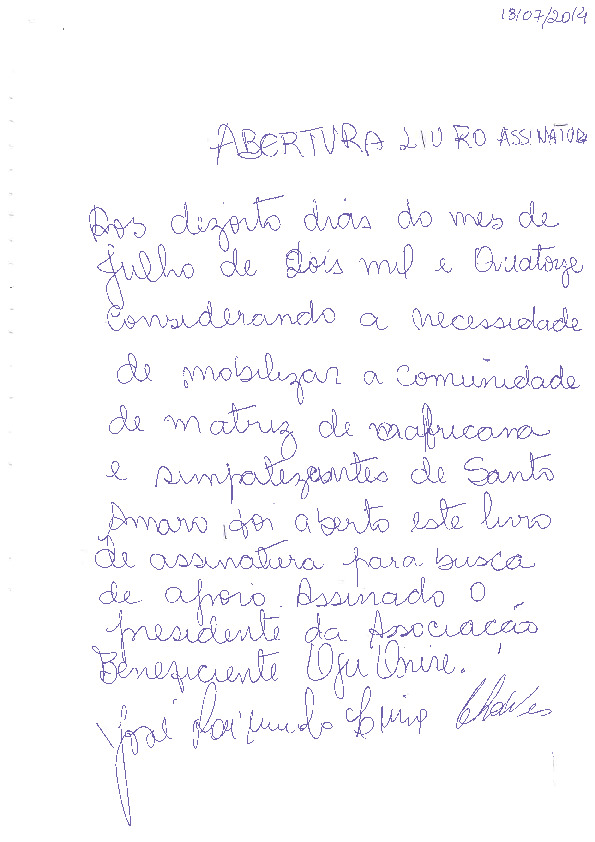 18/07/2014
ABERTURA LIVRO ASSINATURA
Aos dezoito dias do mes de
Julho de Dois mil e Quatorze
considerando a necessidade
de mobilizar a comunidade
de matriz de africana
e simpatezantes de Santo
Amaro, foi aberto este livro
de assinatura para busca
de apoio. Assinado O
presidente da Associação
Beneficiente Ogu Onire.
José Raimundo Lima Chaves